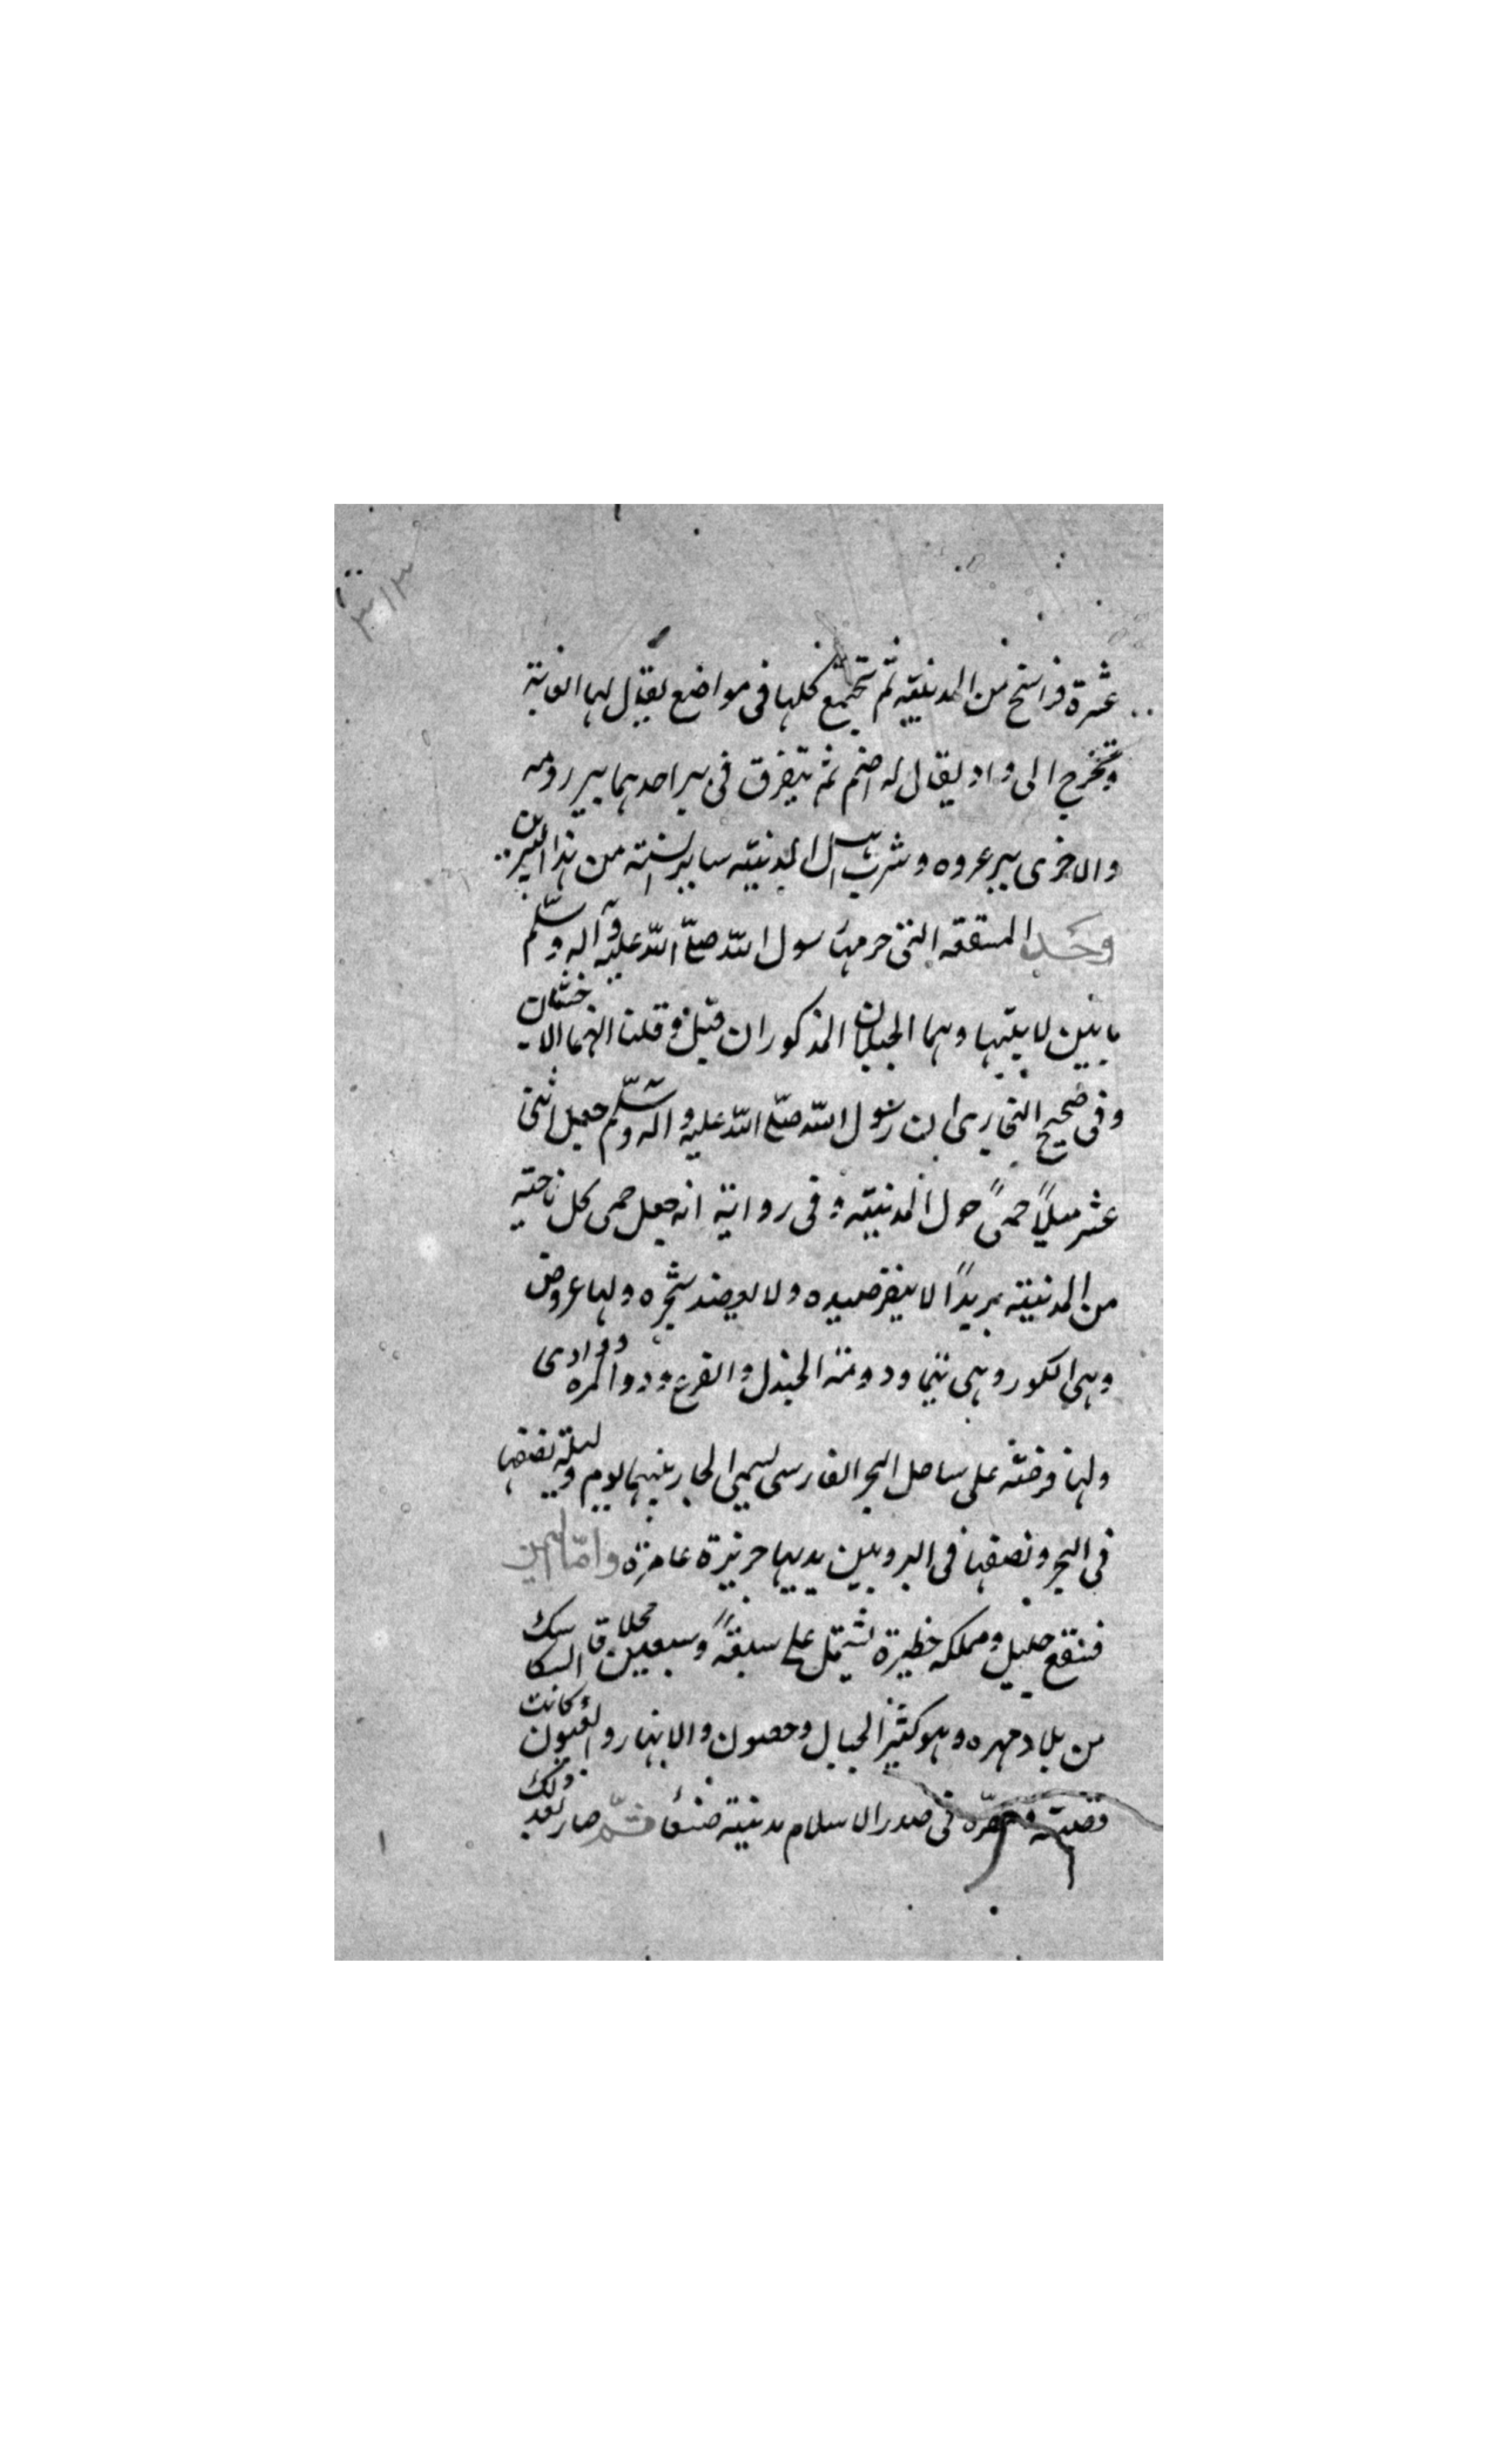 ٣١٣
عشرة فراسخ من المدينة ثم تجتمع كلها فى مواضع يقال لها الغابة
وتخرج الى واد يقال له اضم ثم يتفرق فى بير احدهما بير رومه
والاخرى بير عروه وشرب اهل المدينة ساير السنة من هذا البيرين
وحد المسقفه التى حرمها رسول الله صلّى الله عليه وآله وسلّم
ما بين لابيتها وهما الجبلان المذكوران قيل وقلنا انهما الاخشبان
وفى صحيح البخارى ان رسول الله صلّى الله عليه وآله وسلّم جعل اثنى
عشر ميلاً حمىً حول المدينة وفى رواية انه جعل حمى كل ناحية
من المدينة بريداً لا ينفر صيده ولا يعضد شجره ولها عروض
وهى الكور وهى تيما ودومة الجندل والفرع وذو المره ووادى
ولها فرضة على ساحل البحر الفارسى يسمى الجار بينهما يوم وليلة نصفها
فى البحر ونصفها فى البر وبين يديها جزيرة عامرة وامّا اليمن
فصقع جليل ومملكه خطيرة يشتمل على سبعةً وسبعين محلا
من بلاد مهره وهو كثير الجبال وحصون والانهار والعيون وكانت
قصبته فى صدر الاسلام مدينة صنعا ثمّ صار بعد ذلك